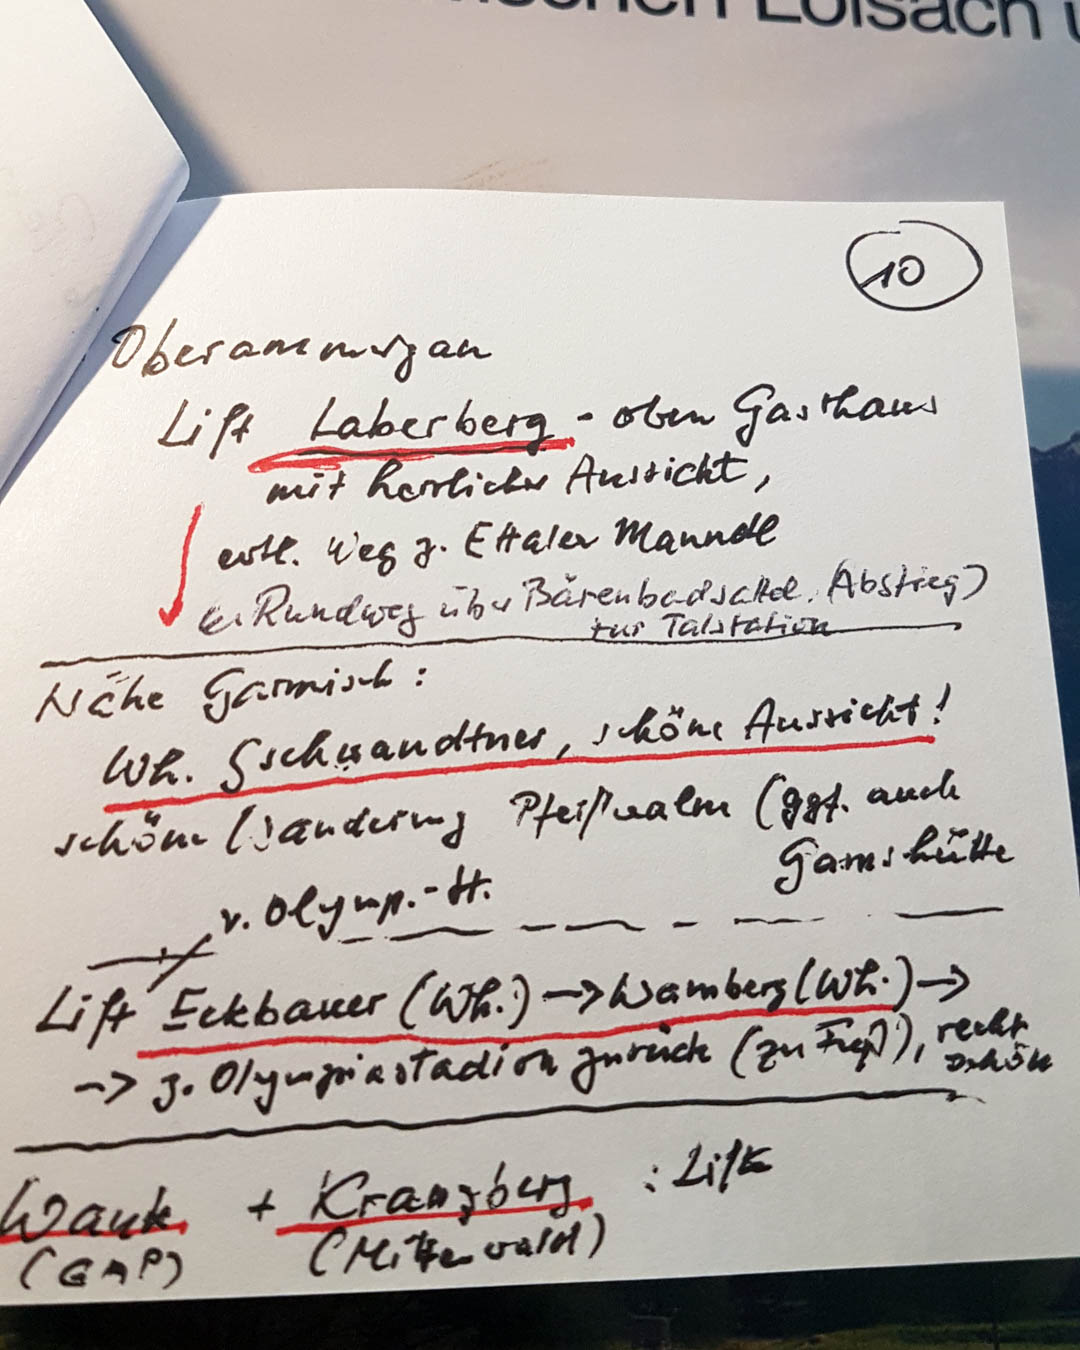 schen Loisach u
10
Oberammergau
Lift Laberberg - oben Gasthaus
mit herrlicher Aussicht,
evtl. Weg z. Ettaler Manndl
Rundweg über Bärenbadsattel. (Abstieg)
zur Talstation
Nähe Garmisch:
Wh. Gschwandtner, schöne Aussicht!
schöne Wanderung Pfeiffenalm (ggf. auch
Gamshütte
v. Olymp.-St.
Lift Eckbauer (Wh.) → Wamberg (Wh.) →
→ z. Olympiastadion zurück (zu Fuß), recht
schön
Wank + Kranzberg : Lifte
(GAP) (Mittenwald)